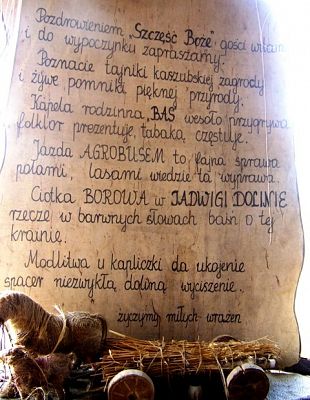 Pozdrowieniem „Szczęść Boże" gości witam
i do wypoczynku zapraszamy.
Poznacie tajniki kaszubskiej zagrody
i żywe pomniki pięknej przyrody.
Kapela rodzinna „BAS" wesoło przygrywa
folklor prezentuje, tabaką częstuje.
Jazda AGROBUSEM to fajna sprawa
polami, lasami wiedzie ta wyprawa.
Ciotka BOROWA w JADWIGI DOLINIE
rzecze w barwnych słowach baśń o tej
krainie.
Modlitwa u kapliczki da ukojenie
spacer niezwykłą doliną wyciszenie.
życzymy miłych wrażeń